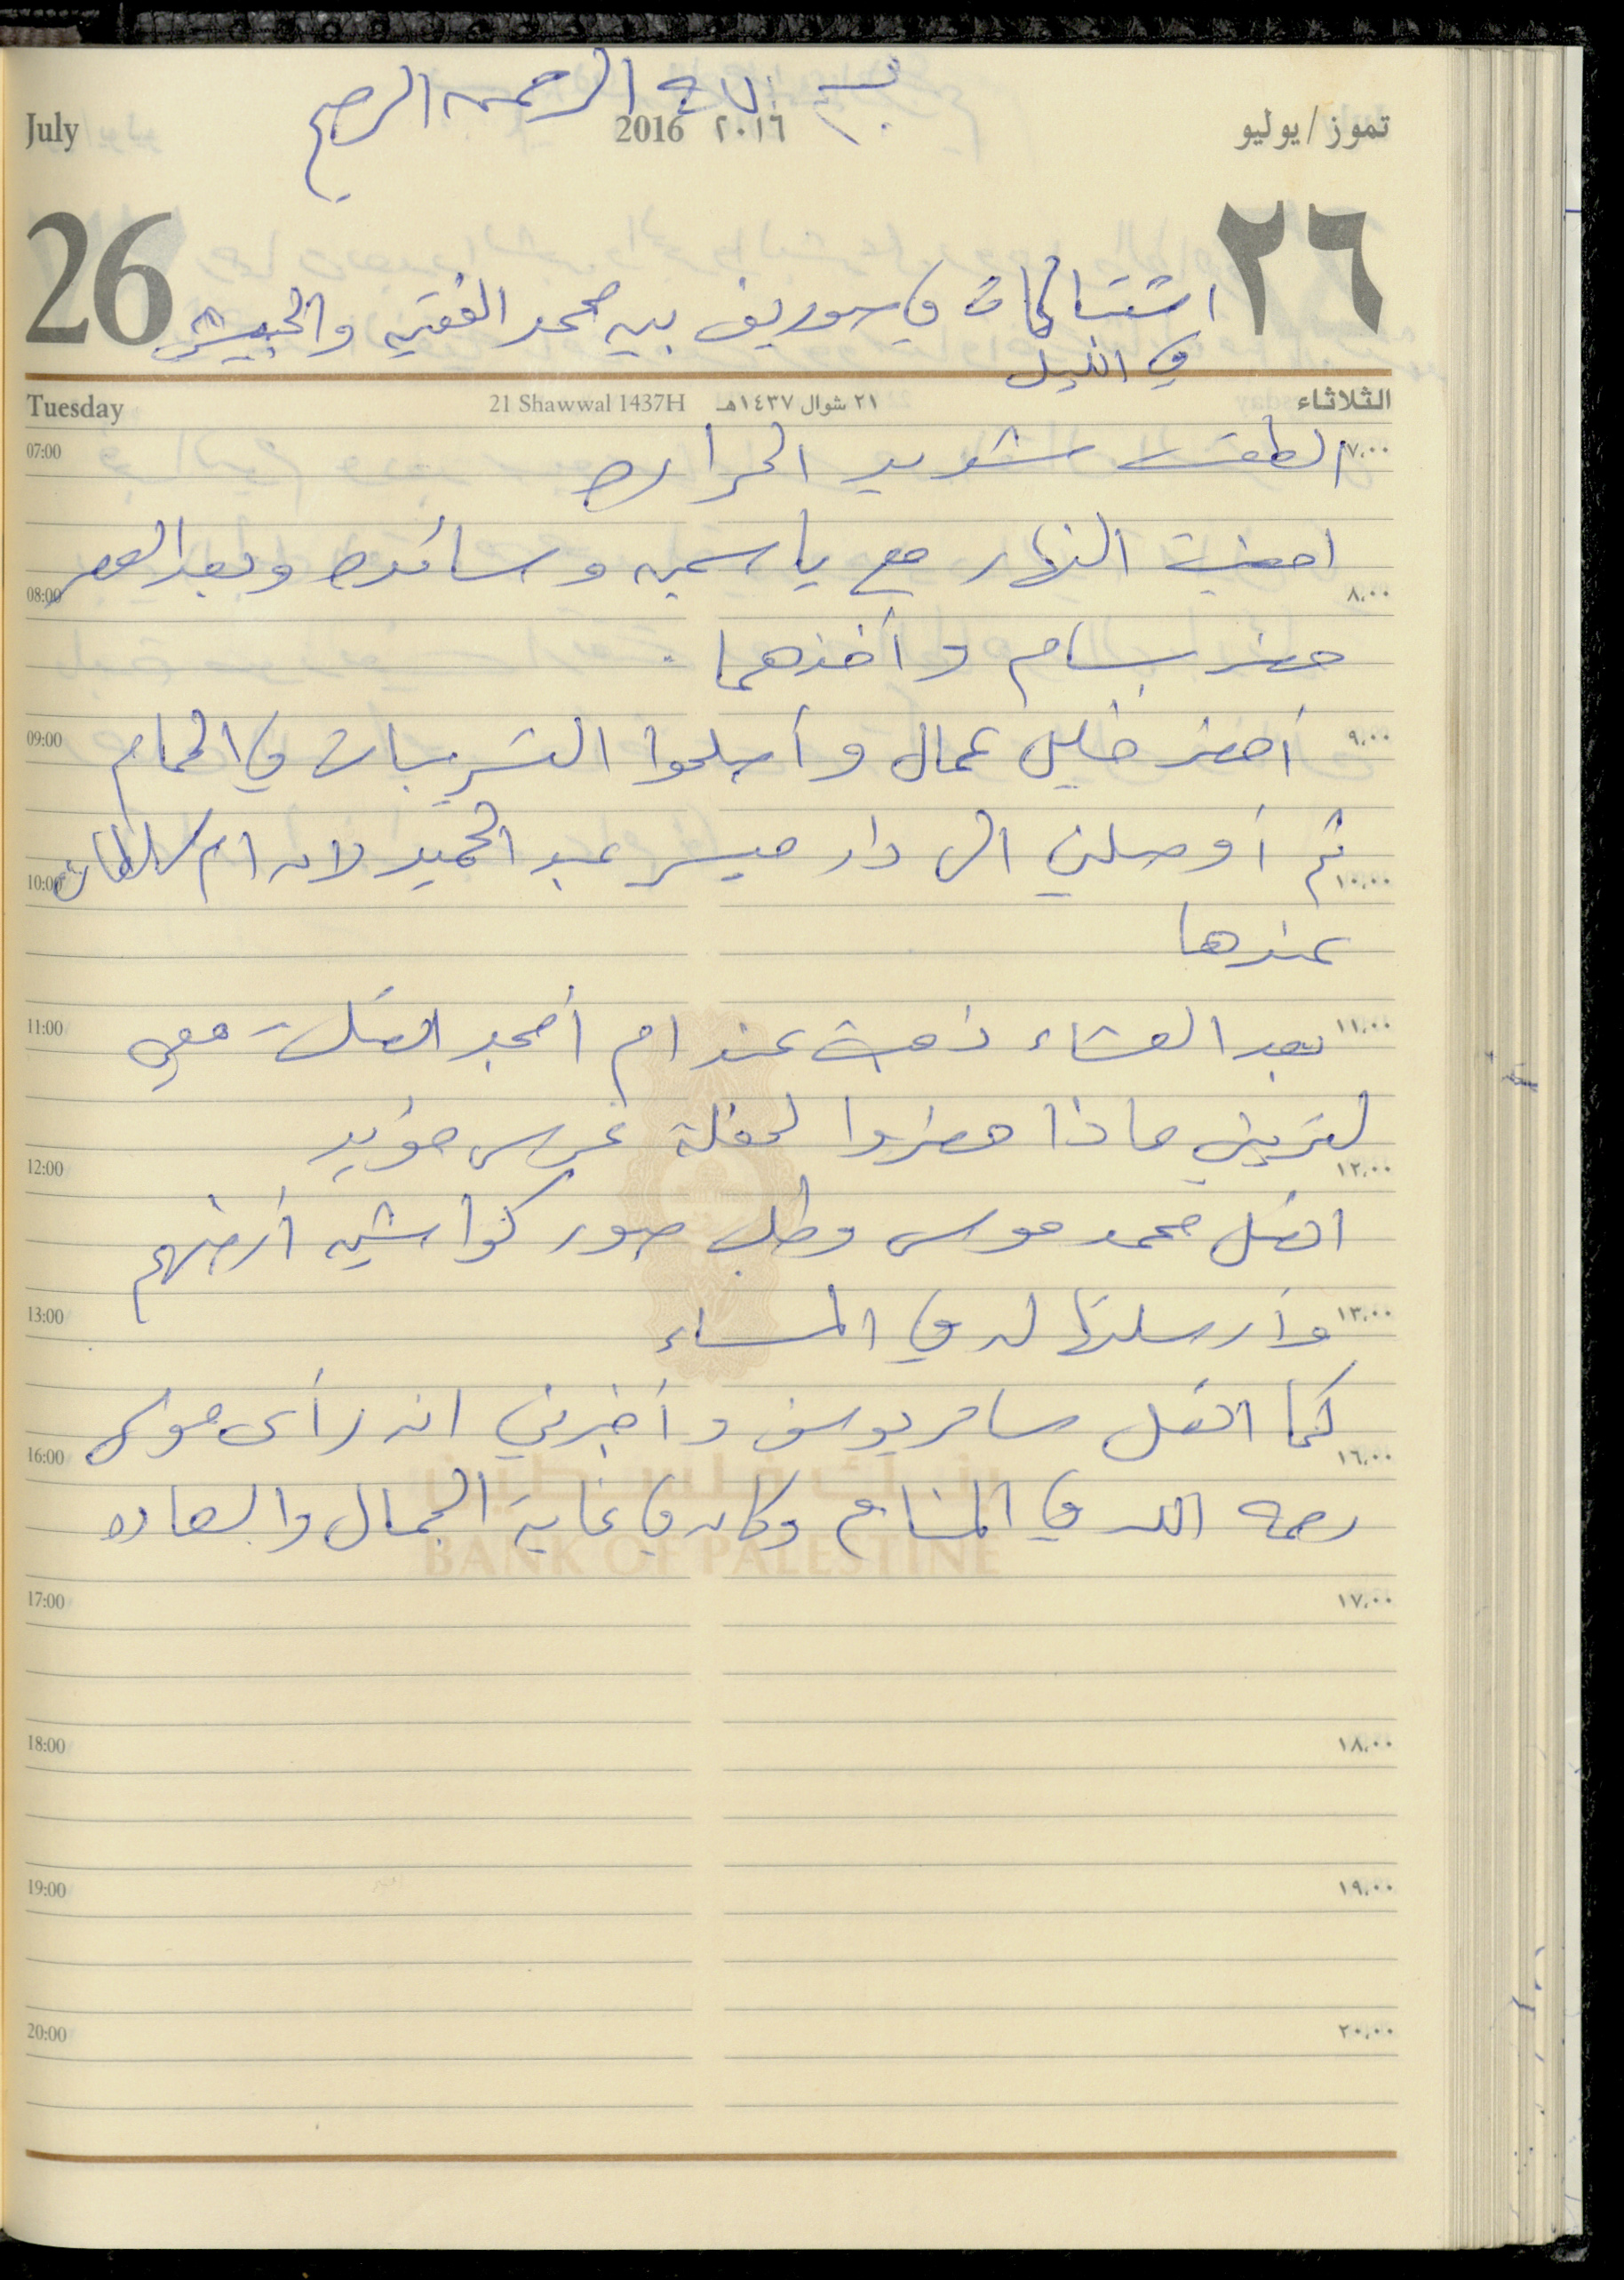 بسم الله الرحمن الرحيم
July 2016 ٢٠١٦ تموز/يوليو
26 ٢٦
اشتباكات في صوريف بين محمد الفقيه والجيش
في الليل
Tuesday 21 Shawwal 1437H ٢١ شوال ١٤٣٧هـ الثلاثاء
07:00 ٧،٠٠
الطقس شديد الحراره
امضيت النهار مع ياسمين وسائده وبعد العصر
08:00 ٨،٠٠
حضر بسام وأخذهما .
09:00 ٩،٠٠
أحضر خليل عمال وأصلحوا التسريبات في الحمام
ثم أوصلني الى دار ميسر عبد الحميد لان ام سلطان
10:00 ١٠،٠٠
عندها
11:00 ١١،٠٠
بعد العشاء ذهبت عند ام أمجد اتصلت معي
لتريني ماذا حضروا لحفلة عرس مؤيد
12:00 ١٢،٠٠
اتصل محمد موسى وطلب صور كواشين أرضهم
13:00 ١٣،٠٠
وأرسلتها له في المساء
كما اتصل سامر يوسف وأخبرني انه رأى موسى
16:00 ١٦،٠٠
رحمه الله في المنام وكان في غاية الجمال والسعاده
بنك فلسطين
BANK OF PALESTINE
17:00 ١٧،٠٠
18:00 ١٨،٠٠
19:00 ١٩،٠٠
20:00 ٢٠،٠٠